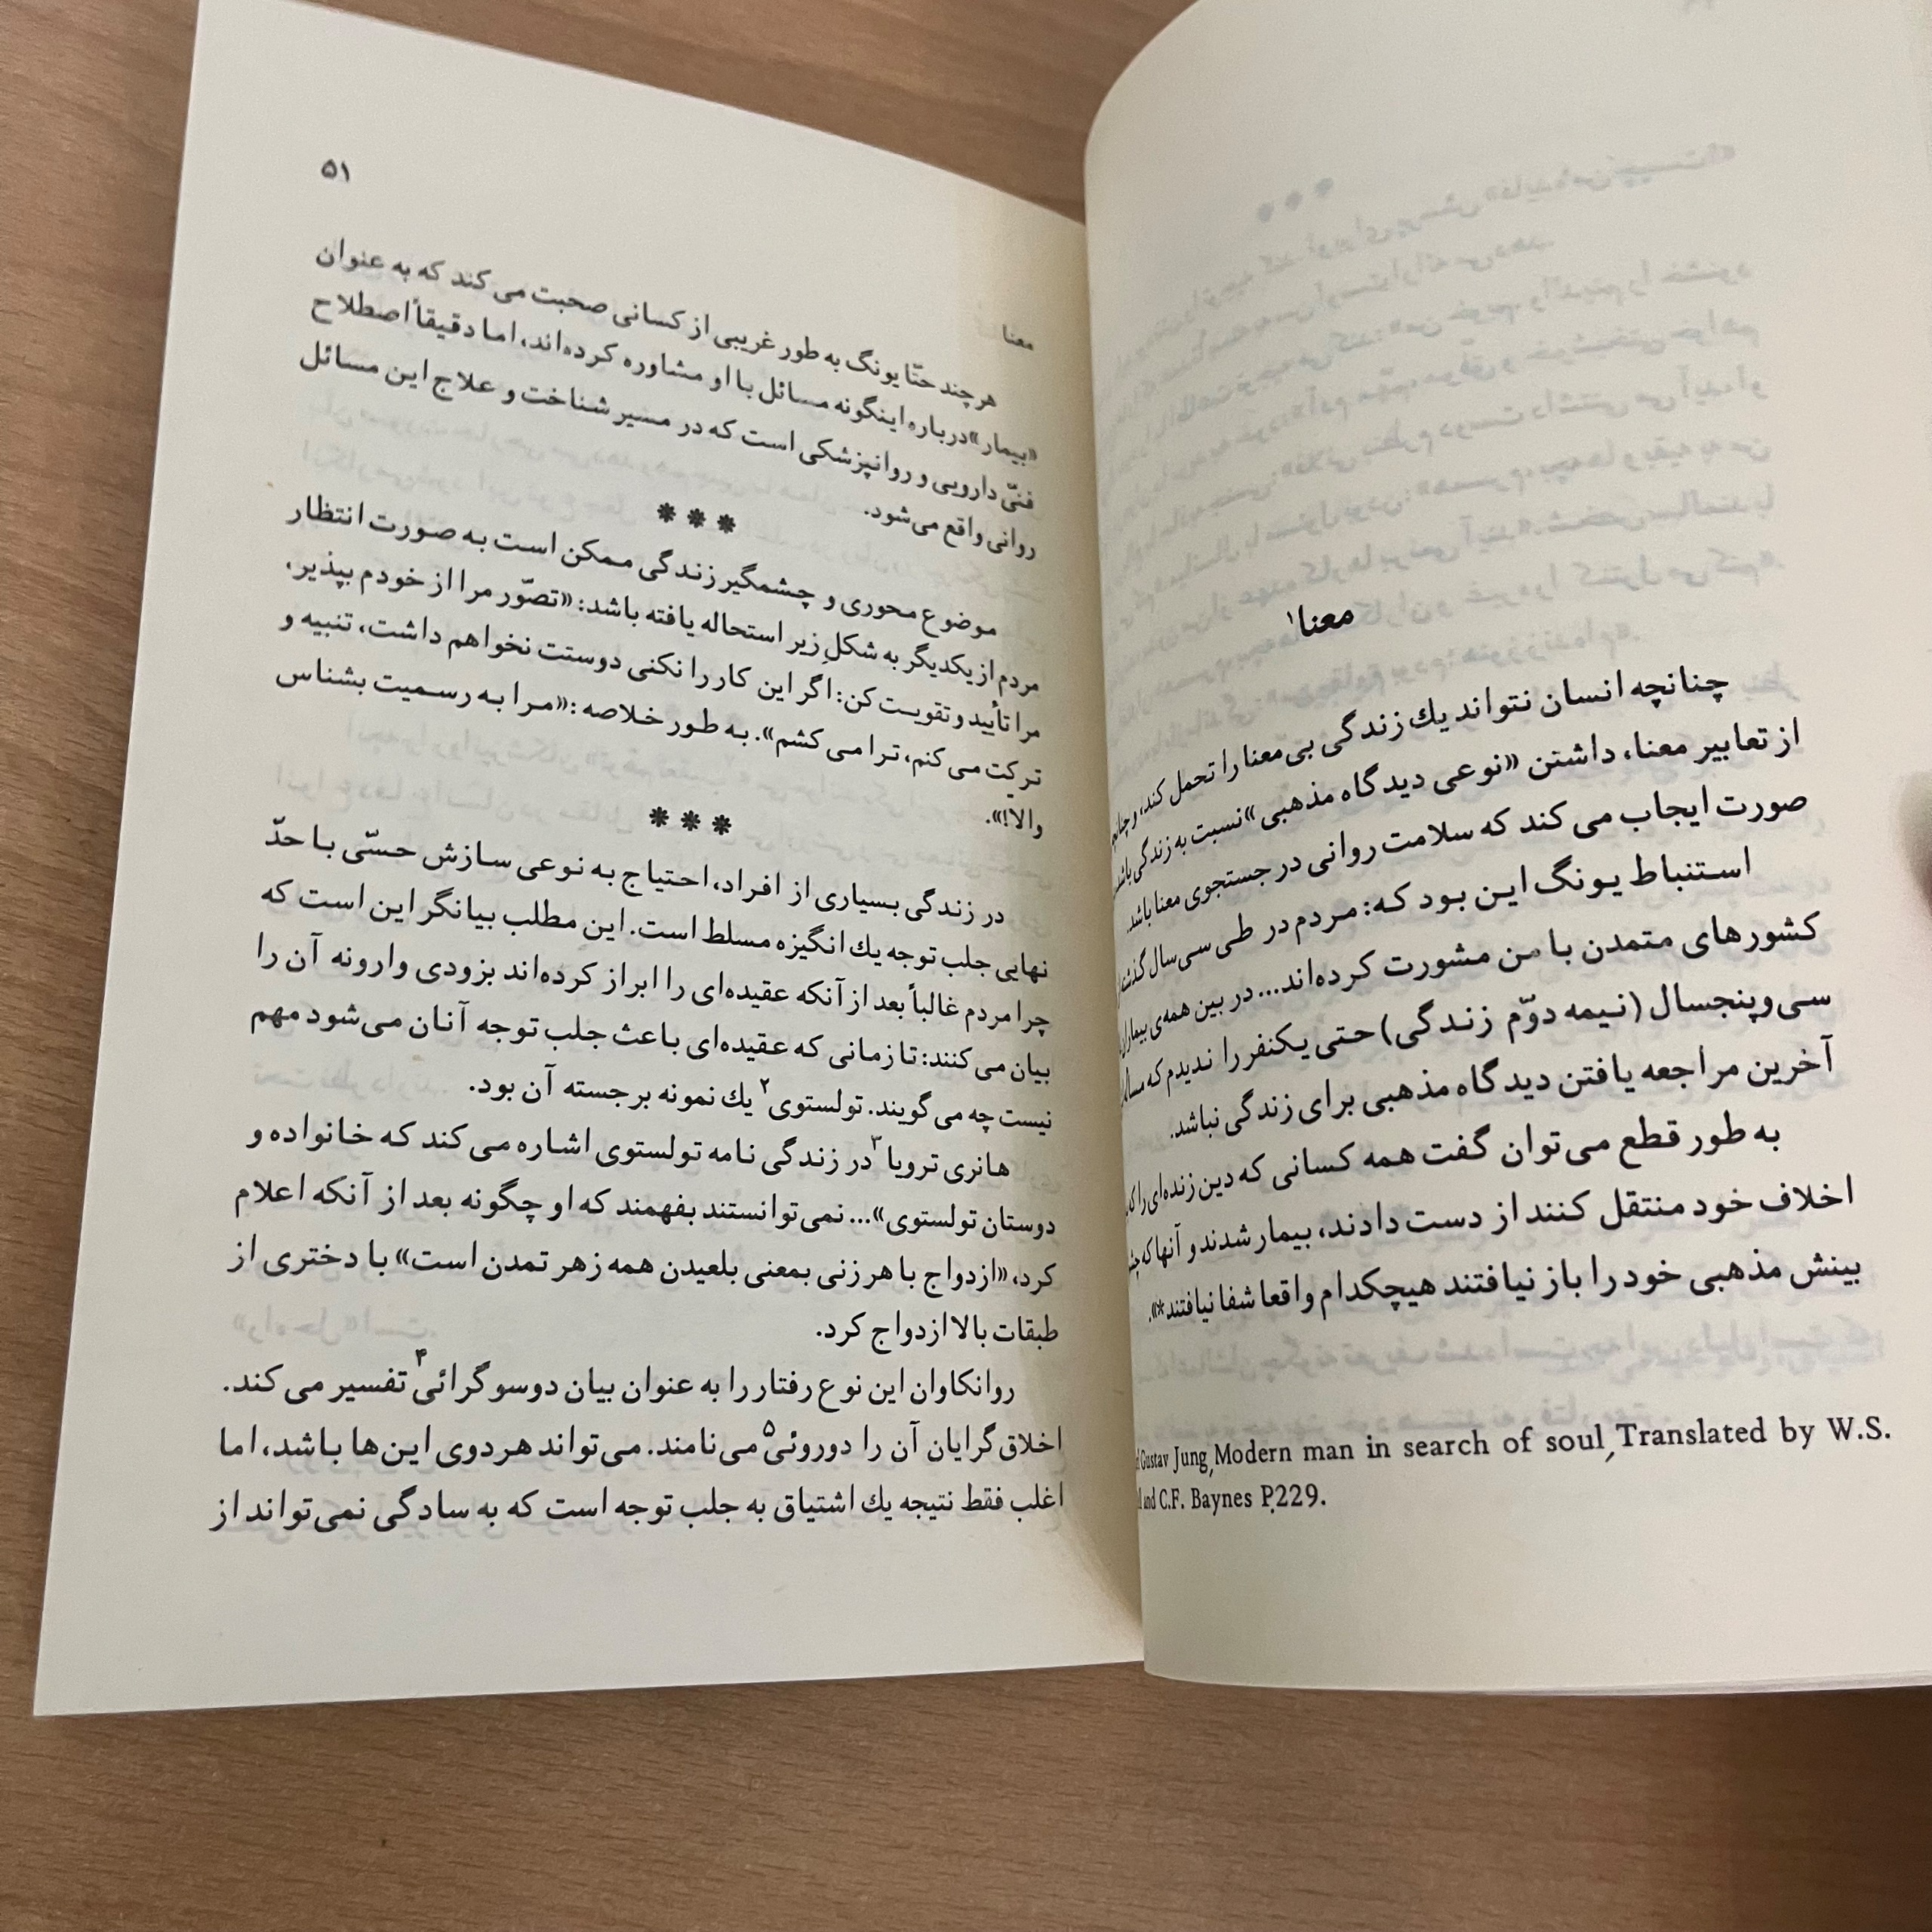 معنا۱
چنانچه انسان نتواند یك زندگی بی‌معنا را تحمل کند، و چنانچه
از تعابیر معنا، داشتن «نوعی دیدگاه مذهبی» نسبت به زندگی باشد،
صورت ایجاب می‌کند که سلامت روانی در جستجوی معنا باشد.
استنباط یونگ این بود که: مردم در طی سی سال گذشته
کشورهای متمدن با من مشورت کرده‌اند... در بین همه‌ی بیماران
سی‌وپنجسال (نیمه دوّم زندگی) حتی یکنفر را ندیدم که
آخرین مراجعه یافتن دیدگاه مذهبی برای زندگی نباشد.
به طور قطع می‌توان گفت همه کسانی که دین زنده‌ای را که
اخلاف خود منتقل کنند از دست دادند، بیمار شدند و آنها که
بینش مذهبی خود را باز نیافتند هیچکدام واقعا شفا نیافتند*».
Gustav Jung, Modern man in search of soul, Translated by W.S.
and C.F. Baynes P.229.
۵۱
معنا
هرچند حتّا یونگ به طور غریبی از کسانی صحبت می‌کند که به عنوان
«بیمار» درباره اینگونه مسائل با او مشاوره کرده‌اند، اما دقیقاً اصطلاح
فنّی دارویی و روانپزشکی است که در مسیر شناخت و علاج این مسائل
روانی واقع می‌شود.
***
موضوع محوری و چشمگیر زندگی ممکن است به صورت انتظار
مردم از یکدیگر به شکلِ زیر استحاله یافته باشد: «تصوّر مرا از خودم بپذیر،
مرا تأیید و تقویت کن: اگر این کار را نکنی دوستت نخواهم داشت، تنبیه و
ترکت می‌کنم، ترا می‌کشم». به طور خلاصه: «مرا به رسمیت بشناس
والا!».
***
در زندگی بسیاری از افراد، احتیاج به نوعی سازش حسّی با حدّ
نهایی جلب توجه یك انگیزه مسلط است. این مطلب بیانگر این است که
چرا مردم غالباً بعد از آنکه عقیده‌ای را ابراز کرده‌اند بزودی وارونه آن را
بیان می‌کنند: تا زمانی که عقیده‌ای باعث جلب توجه آنان می‌شود مهم
نیست چه می‌گویند. تولستوی۲ یك نمونه برجسته آن بود.
هانری ترویا۳ در زندگی نامه تولستوی اشاره می‌کند که خانواده و
دوستان تولستوی»... نمی‌توانستند بفهمند که او چگونه بعد از آنکه اعلام
کرد، «ازدواج با هر زنی بمعنی بلعیدن همه زهر تمدن است» با دختری از
طبقات بالا ازدواج کرد.
روانکاوان این نوع رفتار را به عنوان بیان دوسوگرائی۴ تفسیر می‌کند.
اخلاق‌گرایان آن را دوروئی۵ می‌نامند. می‌تواند هردوی این‌ها باشد، اما
اغلب فقط نتیجه یك اشتیاق به جلب توجه است که به سادگی نمی‌تواند از